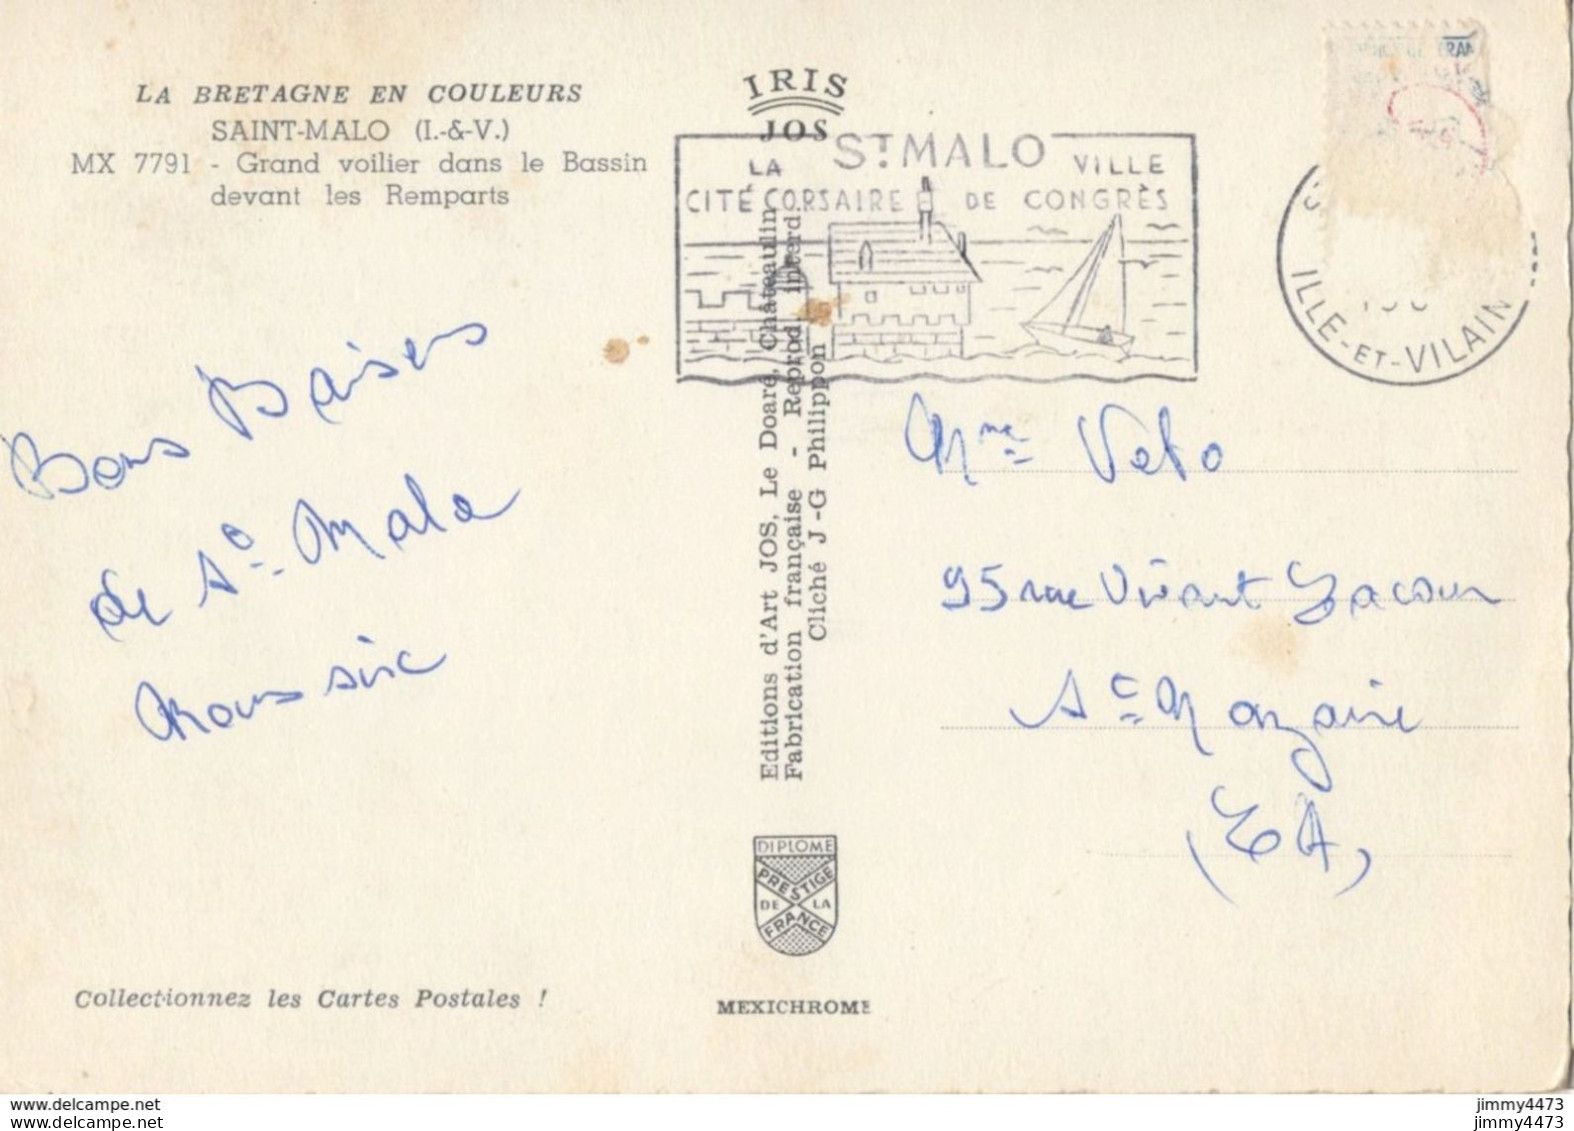 LA BRETAGNE EN COULEURS
SAINT-MALO (I.-&-V.)
MX 7791 - Grand voilier dans le Bassin
devant les Remparts
Bons Baisers
de St Malo
Collectionnez les Cartes Postales !
IRIS
JOS
ST MALO
LA
CITÉ CORSAIRE
VILLE
DE CONGRÈS
Editions d'Art JOS, Le Doaré, Châteaulin
Fabrication française - Reprod. interd.
Cliché J-G Philippon
DIPLOME
PRESTIGE
DE LA
FRANCE
MEXICHROME
ILLE-ET-VILAIN
Mme Velo
95 rue Vivant Lacour
St Nazaire
(LA)
www.delcampe.net
jimmy4473
jimmy4473